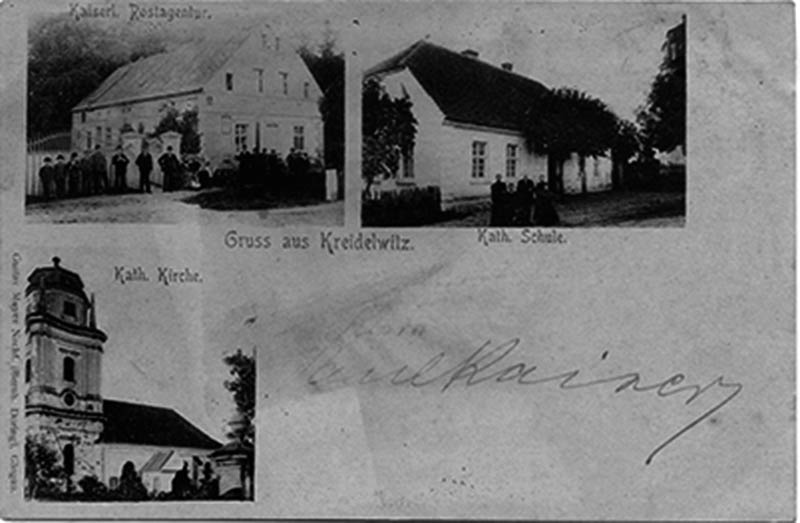 Kaiserl. Postagentur.
Gruss aus Kreidelwitz.
Kath. Schule.
Kath. Kirche.
Gustav Meyer Nachf.
Glogau.